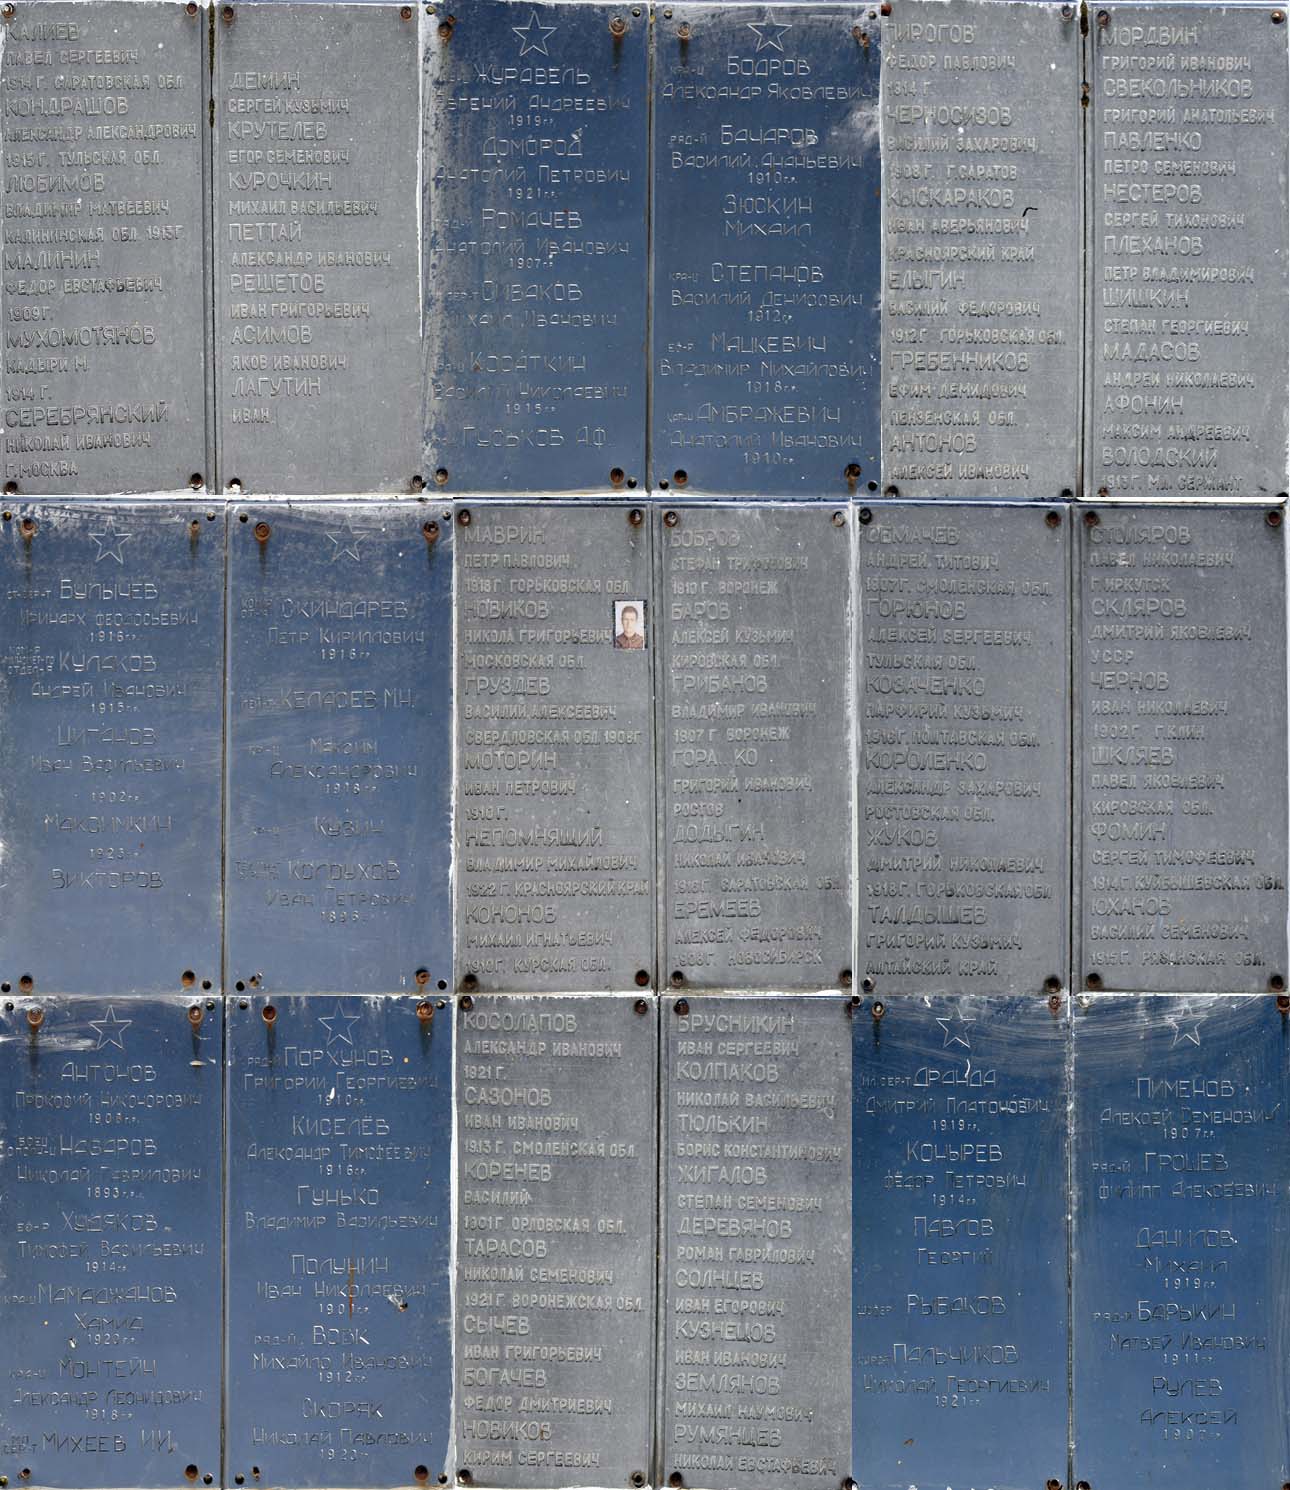 КАЛИЕВ
ПАВЕЛ СЕРГЕЕВИЧ
1914 Г. САРАТОВСКАЯ ОБЛ
КОНДРАШОВ
АЛЕКСАНДР АЛЕКСАНДРОВИЧ
1915 Г. ТУЛЬСКАЯ ОБЛ.
ЛЮБИМОВ
ВЛАДИМИР МАТВЕЕВИЧ
КАЛИНИНСКАЯ ОБЛ 1913Г.
МАЛИНИН
ФЕДОР ЕВСТАФЬЕВИЧ
1909 Г.
МУХОМОТЯНОВ
КАДЫРИ М.
1914 Г.
СЕРЕБРЯНСКИЙ
НИКОЛАЙ ИВАНОВИЧ
Г. МОСКВА
ДЕМИН
СЕРГЕЙ КУЗЬМИЧ
КРУТЕЛЕВ
ЕГОР СЕМЕНОВИЧ
КУРОЧКИН
МИХАИЛ ВАСИЛЬЕВИЧ
ПЕТТАЙ
АЛЕКСАНДР ИВАНОВИЧ
РЕШЕТОВ
ИВАН ГРИГОРЬЕВИЧ
АСИМОВ
ЯКОВ ИВАНОВИЧ
ЛАГУТИН
ИВАН
ЖУРАВЕЛЬ
ЕВГЕНИЙ АНДРЕЕВИЧ
1919г.р.
ДОМОРОД
АНАТОЛИЙ ПЕТРОВИЧ
1921г.р.
РОМАЧЕВ
АНАТОЛИЙ ИВАНОВИЧ
1907г.р.
СИВАКОВ
МИХАИЛ ИВАНОВИЧ
КОСАТКИН
ВАСИЛИЙ НИКОЛАЕВИЧ
1915г.р.
ГУСЬКОВ А.Ф.
КРА-Ц БОДРОВ
АЛЕКСАНДР ЯКОВЛЕВИЧ
РЯД-Й БАЧАРОВ
ВАСИЛИЙ АНАНЬЕВИЧ
1910г.р.
ЗЮСКИН
МИХАИЛ
КРА-Ц СТЕПАНОВ
ВАСИЛИЙ ДЕНИСОВИЧ
1912г.р.
ЕФ-Р МАЦКЕВИЧ
ВЛАДИМИР МИХАЙЛОВИЧ
1918г.р.
АМБРАЖЕВИЧ
АНАТОЛИЙ ИВАНОВИЧ
1910г.р.
ПИРОГОВ
ФЕДОР ПАВЛОВИЧ
1914 Г.
ЧЕРНОСИЗОВ
ВАСИЛИЙ ЗАХАРОВИЧ
1908 Г. Г.САРАТОВ
КЫСКАРАКОВ
ИВАН АВЕРЬЯНОВИЧ
КРАСНОЯРСКИЙ КРАЙ
ЕЛЫГИН
ВАСИЛИЙ ФЕДОРОВИЧ
1912 Г. ГОРЬКОВСКАЯ ОБЛ
ГРЕБЕННИКОВ
ЕФИМ ДЕМИДОВИЧ
ПЕНЗЕНСКАЯ ОБЛ.
АНТОНОВ
АЛЕКСЕЙ ИВАНОВИЧ
МОРДВИН
ГРИГОРИЙ ИВАНОВИЧ
СВЕКОЛЬНИКОВ
ГРИГОРИЙ АНАТОЛЬЕВИЧ
ПАВЛЕНКО
ПЕТРО СЕМЕНОВИЧ
НЕСТЕРОВ
СЕРГЕЙ ТИХОНОВИЧ
ПЛЕХАНОВ
ПЕТР ВЛАДИМИРОВИЧ
ШИШКИН
СТЕПАН ГЕОРГИЕВИЧ
МАДАСОВ
АНДРЕЙ НИКОЛАЕВИЧ
АФОНИН
МАКСИМ АНДРЕЕВИЧ
ВОЛОДСКИЙ
1913 Г. МЛ. СЕРЖАНТ
СТ.СЕР-Т БУЛЫЧЕВ
ИРИНАРХ ФЕОДОСЬЕВИЧ
1916г.р.
КУЛАКОВ
АНДРЕЙ ИВАНОВИЧ
1915г.р.
ЦИГАНОВ
ИВАН ВАСИЛЬЕВИЧ
1902г.р.
МАКСИМКИН
1923г.р.
ВИКТОРОВ
СКИНДАРЕВ
ПЕТР КИРИЛЛОВИЧ
1916г.р.
КЕЛАСЕВ М.Н.
КР-Ц МАКСИМ
АЛЕКСАНДРОВИЧ
1918г.р.
КУЗИН
КОЛОУХОВ
ИВАН ПЕТРОВИЧ
1896г.
МАВРИН
ПЕТР ПАВЛОВИЧ
1918 Г. ГОРЬКОВСКАЯ ОБЛ
НОВИКОВ
НИКОЛА ГРИГОРЬЕВИЧ
МОСКОВСКАЯ ОБЛ.
ГРУЗДЕВ
ВАСИЛИЙ АЛЕКСЕЕВИЧ
СВЕРДЛОВСКАЯ ОБЛ 1908Г
МОТОРИН
ИВАН ПЕТРОВИЧ
1910 Г.
НЕПОМНЯЩИЙ
ВЛАДИМИР МИХАЙЛОВИЧ
1922 Г. КРАСНОЯРСКИЙ КРАЙ
КОНОНОВ
МИХАИЛ ИГНАТЬЕВИЧ
1910 Г. КУРСКАЯ ОБЛ.
БОБРОВ
СТЕФАН ТРИФОНОВИЧ
1910 Г. ВОРОНЕЖ
БАРОВ
АЛЕКСЕЙ КУЗЬМИЧ
КИРОВСКАЯ ОБЛ.
ГРИБАНОВ
ВЛАДИМИР ИВАНОВИЧ
1907 Г. ВОРОНЕЖ
ГОРА...КО
ГРИГОРИЙ ИВАНОВИЧ
РОСТОВ
ДОДЫГИН
НИКОЛАЙ ИВАНОВИЧ
1916 Г. САРАТОВСКАЯ ОБЛ.
ЕРЕМЕЕВ
АЛЕКСЕЙ ФЕДОРОВИЧ
1906 Г. НОВОСИБИРСК
СЕМАЧЕВ
АНДРЕЙ ТИТОВИЧ
1907 Г. СМОЛЕНСКАЯ ОБЛ
ГОРЮНОВ
АЛЕКСЕЙ СЕРГЕЕВИЧ
ТУЛЬСКАЯ ОБЛ.
КОЗАЧЕНКО
ПАРФИРИЙ КУЗЬМИЧ
1916 Г. ПОЛТАВСКАЯ ОБЛ.
КОРОЛЕНКО
АЛЕКСАНДР ЗАХАРОВИЧ
РОСТОВСКАЯ ОБЛ.
ЖУКОВ
ДМИТРИЙ НИКОЛАЕВИЧ
1918 Г. ГОРЬКОВСКАЯ ОБЛ
ТАЛДЫШЕВ
ГРИГОРИЙ КУЗЬМИЧ
АЛТАЙСКИЙ КРАЙ
СТОЛЯРОВ
ПАВЕЛ НИКОЛАЕВИЧ
Г. ИРКУТСК
СКЛЯРОВ
ДМИТРИЙ ЯКОВЛЕВИЧ
УССР
ЧЕРНОВ
ИВАН НИКОЛАЕВИЧ
1902 Г. Г.КЛИН
ШКЛЯЕВ
ПАВЕЛ ЯКОВЛЕВИЧ
КИРОВСКАЯ ОБЛ.
ФОМИН
СЕРГЕЙ ТИМОФЕЕВИЧ
1914 Г. КУЙБЫШЕВСКАЯ ОБЛ.
ЮХАНОВ
ВАСИЛИЙ СЕМЕНОВИЧ
1915 Г. РЯЗАНСКАЯ ОБЛ.
АНТОНОВ
ПРОКОФИЙ НИКОНОРОВИЧ
1908г.р.
НАЗАРОВ
НИКОЛАЙ ГАВРИЛОВИЧ
1893г.р.
ЕФ-Р ХУДЯКОВ
ТИМОФЕЙ ВАСИЛЬЕВИЧ
1914г.р.
КРА-Ц МАМАДЖАНОВ
ХАМИД
1920г.р.
КРА-Ц МОНТЕЙН
АЛЕКСАНДР ЛЕОНИДОВИЧ
1918г.р.
МЛ. СЕР-Т МИХЕЕВ И.И.
РЯД-Й ПОРХУНОВ
ГРИГОРИЙ ГЕОРГИЕВИЧ
1910г.р.
КИСЕЛЁВ
АЛЕКСАНДР ТИМОФЕЕВИЧ
1916г.р.
ГУНЬКО
ВЛАДИМИР ВАСИЛЬЕВИЧ
ПОЛУНИН
ИВАН НИКОЛАЕВИЧ
1901г.р.
РЯД-Й ВОВК
МИХАЙЛО ИВАНОВИЧ
1912г.р.
СКОРЯК
НИКОЛАЙ ПАВЛОВИЧ
1923г.р.
КОСОЛАПОВ
АЛЕКСАНДР ИВАНОВИЧ
1921 Г.
САЗОНОВ
ИВАН ИВАНОВИЧ
1913 Г. СМОЛЕНСКАЯ ОБЛ.
КОРЕНЕВ
ВАСИЛИЙ
1901 Г. ОРЛОВСКАЯ ОБЛ.
ТАРАСОВ
НИКОЛАЙ СЕМЕНОВИЧ
1921 Г. ВОРОНЕЖСКАЯ ОБЛ.
СЫЧЕВ
ИВАН ГРИГОРЬЕВИЧ
БОГАЧЕВ
ФЕДОР ДМИТРИЕВИЧ
НОВИКОВ
КИРИМ СЕРГЕЕВИЧ
БРУСНИКИН
ИВАН СЕРГЕЕВИЧ
КОЛПАКОВ
НИКОЛАЙ ВАСИЛЬЕВИЧ
ТЮЛЬКИН
БОРИС КОНСТАНТИНОВИЧ
ЖИГАЛОВ
СТЕПАН СЕМЕНОВИЧ
ДЕРЕВЯНОВ
РОМАН ГАВРИЛОВИЧ
СОЛНЦЕВ
ИВАН ЕГОРОВИЧ
КУЗНЕЦОВ
ИВАН ИВАНОВИЧ
ЗЕМЛЯНОВ
МИХАИЛ НАУМОВИЧ
РУМЯНЦЕВ
НИКОЛАЙ ЕВСТАФЬЕВИЧ
МЛ.СЕР-Т ДРАНДА
ДМИТРИЙ ПЛАТОНОВИЧ
1919г.р.
КОЦЫРЕВ
ФЁДОР ПЕТРОВИЧ
1914г.р.
ПАВЛОВ
ГЕОРГИЙ
ШОФЕР РЫБАКОВ
ПАЛЬЧИКОВ
НИКОЛАЙ ГЕОРГИЕВИЧ
1921г.р.
ПИМЕНОВ
АЛЕКСЕЙ СЕМЕНОВИЧ
1907г.р.
РЯД-Й ГРОШЕВ
ФИЛИПП АЛЕКСЕЕВИЧ
ДАНИЛОВ
МИХАИЛ
1919г.р.
РЯД-Й БАРЫКИН
МАТВЕЙ ИВАНОВИЧ
1911г.р.
РУЛЕВ
АЛЕКСЕЙ
1907г.р.